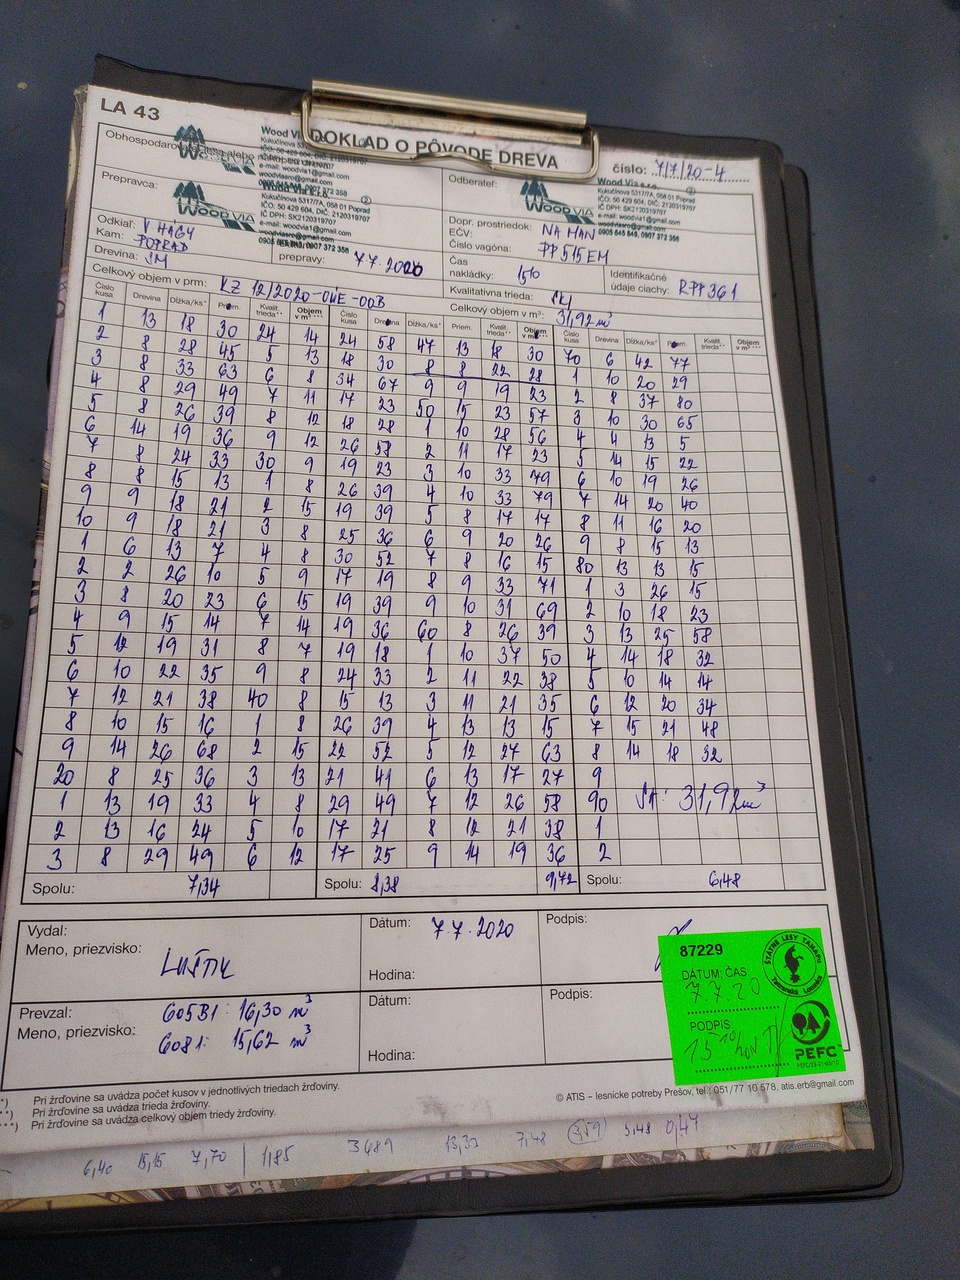 LA 43
DOKLAD O PÔVODE DREVA
číslo: 7/7/20-4
Obhospodarov
Wood Via
Kukučínova 5317/A, 058 01 Poprad
IČO: 50 429 604, DIČ: 2120319707
e-mail: woodvia1@gmail.com
Prepravca:
WOOD VIA
Wood Via s.r.o.
Kukučínova 5317/7A, 058 01 Poprad
IČO: 50 429 604, DIČ: 2120319707
IČ DPH: SK2120319707
e-mail: woodvia1@gmail.com
woodviasro@gmail.com
Odberateľ:
WOOD VIA
Wood Via s.r.o.
Kukučínova 5317/7A, 058 01 Poprad
IČO: 50 429 604, DIČ: 2120319707
IČ DPH: SK2120319707
e-mail: woodvia1@gmail.com
woodviasro@gmail.com
0905 645 845, 0907 372 358
Odkiaľ: V HÁGY
Kam: POPRAD
prepravy: 7.7.2020
Drevina: SM
Dopr. prostriedok: NA MAN
EČV: PP515EM
Číslo vagóna:
Čas nakládky: 15 10
Identifikačné údaje ciachy: RPP361
Kvalitatívna trieda:
Celkový objem v prm: KZ 12/2020-OÚE-OOB
Celkový objem v m³: 31,92 m³
Číslo kusa Drevina Dĺžka/ks* Priem. Kvalit. trieda** Objem v m³*** Číslo kusa Drevina Dĺžka/ks* Priem. Kvalit. trieda** Objem v m³*** Číslo kusa Drevina Dĺžka/ks* Priem. Kvalit. trieda** Objem v m³***
1 13 18 30 24 14 24 58 47 13 18 30 70 6 42 77
2 8 28 45 5 13 18 30 8 8 22 28 1 10 20 29
3 8 33 63 6 8 34 67 9 9 19 23 2 8 37 80
4 8 29 49 7 11 17 23 50 15 23 57 3 10 30 65
5 8 26 39 8 12 18 28 1 10 28 56 4 4 13 5
6 14 19 36 9 12 26 58 2 11 17 23 5 14 15 22
7 8 24 33 30 9 19 23 3 10 33 79 6 10 19 26
8 8 15 13 1 8 26 39 4 10 33 79 7 14 20 40
9 9 18 21 2 15 19 39 5 8 17 17 8 11 16 20
10 9 18 21 3 8 25 36 6 9 20 26 9 8 15 13
1 6 13 7 4 8 30 52 7 8 16 15 80 13 13 15
2 2 26 10 5 9 17 19 8 9 33 71 1 3 26 15
3 8 20 23 6 15 19 39 9 10 31 69 2 10 18 23
4 9 15 14 7 14 19 36 60 8 26 39 3 13 25 58
5 12 19 31 8 7 19 18 1 10 37 50 4 14 18 32
6 10 22 35 9 8 24 33 2 11 22 38 5 10 14 14
7 12 21 38 40 8 15 13 3 11 21 35 6 12 20 34
8 10 15 16 1 8 26 39 4 13 13 15 7 15 21 48
9 14 26 68 2 15 22 52 5 12 27 63 8 14 18 32
20 8 25 36 3 13 21 41 6 13 17 27 9
1 13 19 33 4 8 29 49 7 12 26 58 90 31,92m³
2 13 16 24 5 10 17 21 8 12 21 38 1
3 8 29 49 6 12 17 25 9 14 19 36 2
Spolu: 7,34 Spolu: 8,38 9,72 Spolu: 6,48
Vydal:
Meno, priezvisko:
Dátum: 7.7.2020
Hodina:
Podpis:
Prevzal:
Meno, priezvisko:
605B1: 16,30 m³
6081: 15,62 m³
Dátum:
Hodina:
Podpis:
87229
DÁTUM, ČAS:
7.7.20
PODPIS:
15 10
ŠTÁTNE LESY TANAPU
Tatranská Lomnica
PEFC
© ATIS – lesnícke potreby Prešov, tel.: 051/77 10 578, atis.erb@gmail.com
*) Pri žrďovine sa uvádza počet kusov v jednotlivých triedach žrďoviny.
**) Pri žrďovine sa uvádza trieda žrďoviny.
***) Pri žrďovine sa uvádza celkový objem triedy žrďoviny.
6,40 15,15 7,70 1,85 3689 13,33 7,48 3,59 5,48 0,47